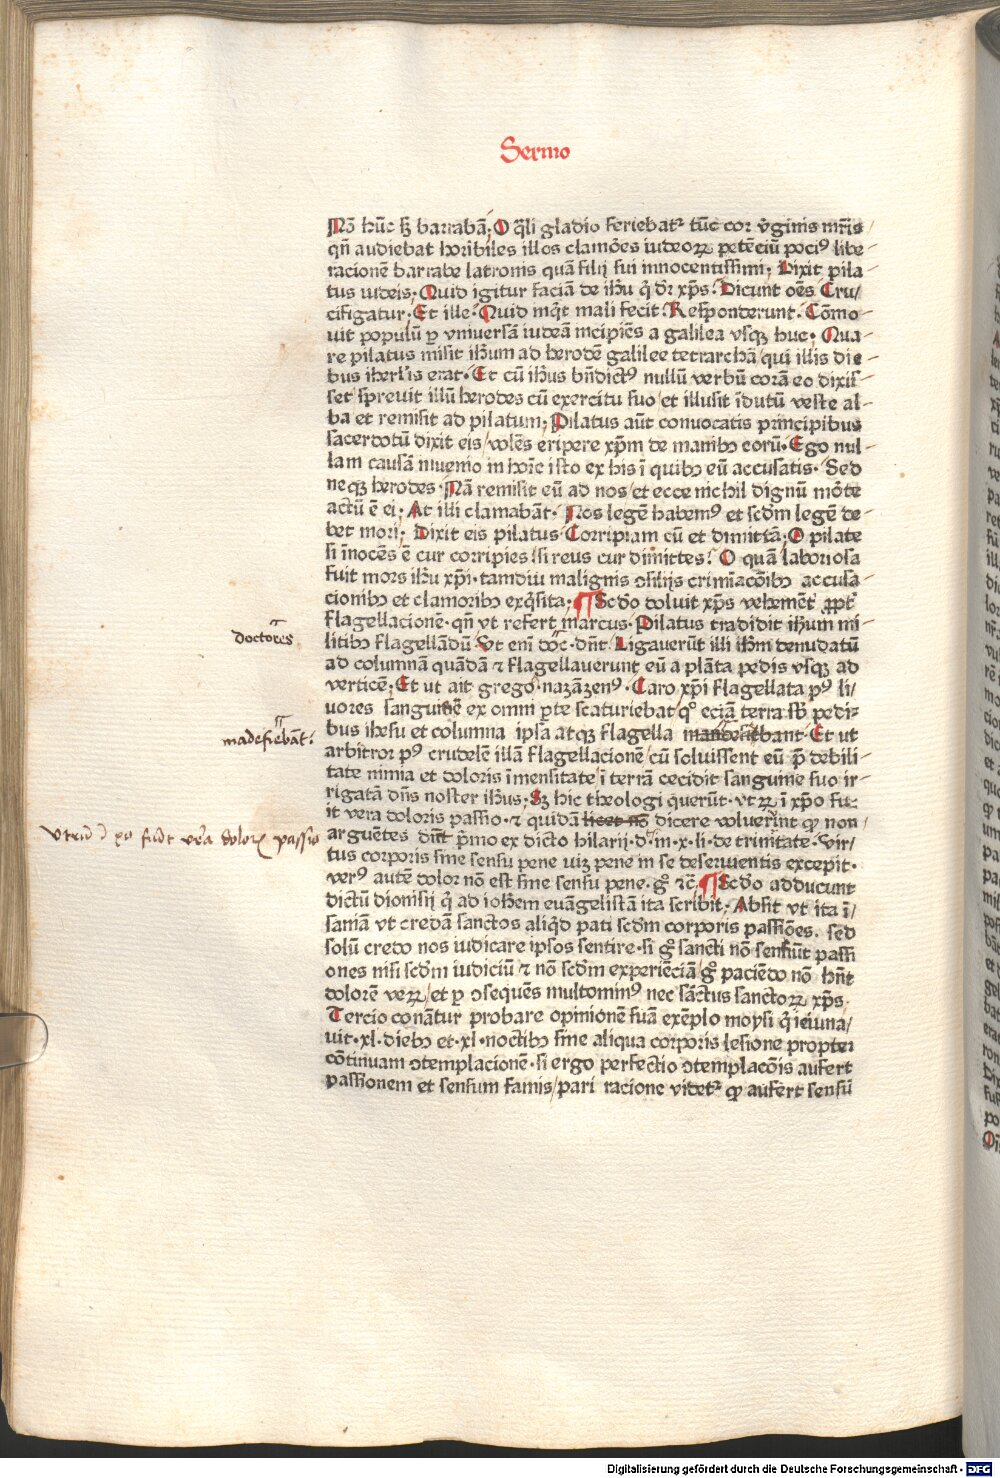 Sermo
Nō hūc sȝ barrabā. O q̄li gladio feriebat᷑ tūc cor v̄ginis mr̄is
qn̄ audiebat horibiles illos clamōes iudeoꝝ petēciū pociꝰ libe
racionē barrabe latronis quā filij sui innocentissimi. Dixit pila
tus iudeis. Quid igitur faciā de ihū q̄ dr̄ xp̄s. Dicunt oēs Cru/
cifigatur. Et ille. Quid inq̄t mali fecit. Responderunt. Cōmo
uit populū ꝑ vniuersā iudeā incipiēs a galilea vsqȝ huc. Qua
re pilatus misit ihūm ad herodē galilee tetrarchā qui illis die
bus iherl̄is erat. Et cū ihūs bn̄dictꝰ nullū verbū corā eo dixis
set spreuit illū herodes cū exercitu suo/et illusit īdutū veste al
ba et remisit ad pilatum. Pilatus aūt conuocatis principibus
sacerdotū dixit eis/volēs eripere xp̄m de manibȝ eorū. Ego nul
lam causā inuenio in hoīe isto ex his ī quibȝ eū accusatis. Sed
neqȝ herodes. Nā remisit eū ad nos/et ecce nichil dignū mōte
actū ē ei. At illi clamabāt. Nos legē habemꝰ et scdm̄ legē de
bet mori. Dixit eis pilatus Corripiam eū et dimittā. O pilate
si īnocēs ē cur corripies/si reus cur dimittes. O quā laboriosa
fuit mors ihū xp̄i. tamdiu malignis ↄsilijs crimīacōibȝ accusa
cionibȝ et clamoribȝ exq̄sita. ¶ Scdo doluit xp̄s vehemēt᷑ ꝓpt᷑
flagellacionē. qn̄ vt refert marcus. Pilatus tradidit ihūm mi
litibȝ flagellādū. Vt enī doc̄. dn̄t. Ligauerūt illi ihm̄ denudatū
ad columnā quādā ⁊ flagellauerunt eū a plāta pedis vsqȝ ad
verticē. Et ut ait grego. nazāzenꝰ. Caro xp̄i flagellata pꝰ li/
uores sanguinē ex omni ꝑte scaturiebat/qͦ eciā terra sb̄ pedi
bus ihesu et columna ipsa atqȝ flagella Et ut
arbitror pꝰ crudelē illā flagellacionē/cū soluissent eū p̄ debili
tate nimia et doloris īmensitate ī terrā cecidit sanguine suo ir
rigatā dn̄s noster ihūs. Sȝ hic theologi querūt. vtꝝ ī xp̄o fue
it vera doloris passio. ⁊ quidā licet nō dicere voluerint ꝙ non
arguētes dn̄t p̄mo ex dicto hilarij. d. in. x. li. de trinitate. Vir/
tus corporis sine sensu pene uiȝ pene in se deseruientis excepit.
verꝰ autē dolor nō est sine sensu pene. gͦ ⁊c̄. ¶ Scdo adducunt
dictū dionisij q̄ ad iohēm euāgelistā ita scribit. Absit vt ita ī/
saniā vt credā sanctos aliq̄d pati scdm̄ corporis passiōes. sed
solū credo nos iudicare ipsos sentire. si gͦ sancti nō senserūt passi
ones nisi scdm̄ iudiciū ⁊ nō scdm̄ experiēciā/gͦ paciēdo nō hn̄t
dolorē veꝝ/et ꝑ ↄsequēs multominꝰ nec sāctus sanctoꝝ xp̄s.
Tercio conātur probare opinionē suā exēplo moysi q̄ ieiuna/
uit. xl. diebȝ et. xl. noctibȝ sine aliqua corporis lesione propter
cōtinuam ↄtemplacionē. si ergo perfectio ↄtemplacōis aufert
passionem et sensum famis/pari racione videt᷑ ꝙ aufert sensū
doctores
madefiebāt.